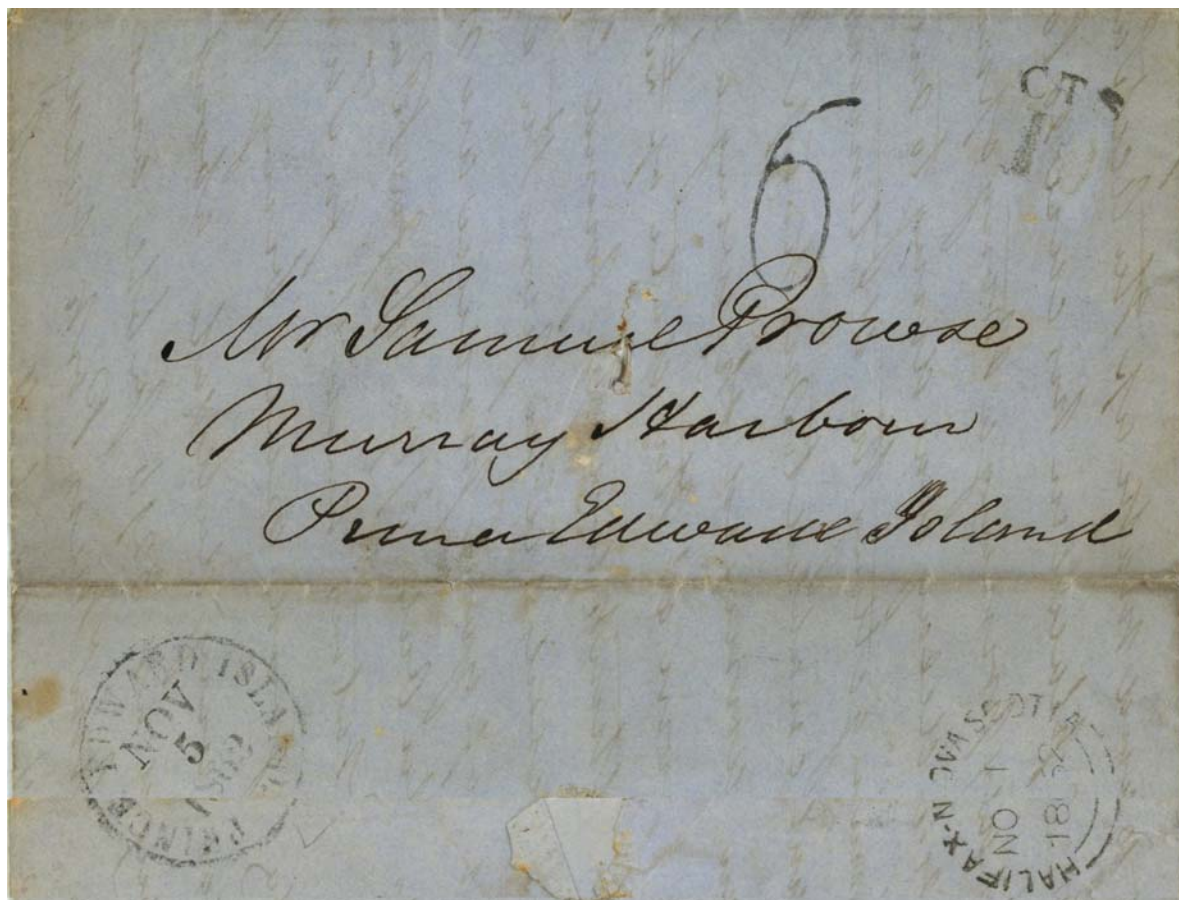 CTS
6
Mr Samuel Prowse
Murray Harbour
Prince Edward Island
PRINCE EDWARD ISLAND
NOV
5
1862
HALIFAX-NOVA SCOTIA
NO 1
18